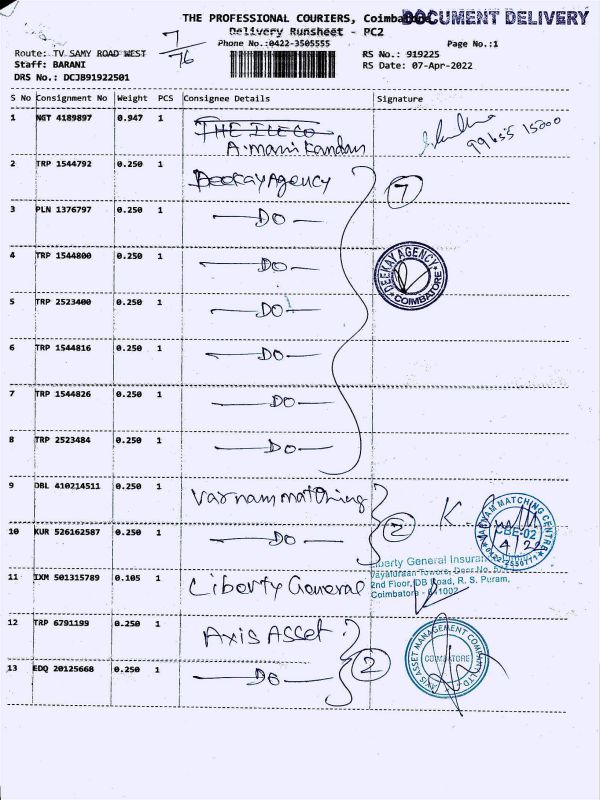 THE PROFESSIONAL COURIERS, Coimbatore DOCUMENT DELIVERY
Delivery Runsheet - PC2
7/76
Phone No.:0422-3505555 Page No.:1
Route: TV SAMY ROAD WEST RS No.: 919225
Staff: BARANI RS Date: 07-Apr-2022
DRS No.: DCJB91922501
S No Consignment No Weight PCS Consignee Details Signature
1 NGT 4189897 0.947 1
A. Manikandan 99655 15000
2 TRP 1544792 0.250 1 Deekay Agency 7
3 PLN 1376797 0.250 1 DO
4 TRP 1544800 0.250 1 DO
DEEKAY AGENCY COIMBATORE
5 TRP 2523400 0.250 1 DO
6 TRP 1544816 0.250 1 DO
7 TRP 1544826 0.250 1 DO
8 TRP 2523484 0.250 1 DO
9 DBL 410214511 0.250 1 Varnam matching 2 K.
MATCHING CENTRE CBE-02
10 KUR 526162587 0.250 1 DO
11 IXM 501315789 0.105 1 Liberty General
Liberty General Insurance
2nd Floor, DB Road, R. S. Puram,
Coimbatore - 641002
12 TRP 6791199 0.250 1 Axis Asset 2
AXIS ASSET MANAGEMENT COMPANY LTD COIMBATORE
13 EDQ 20125668 0.250 1 DO